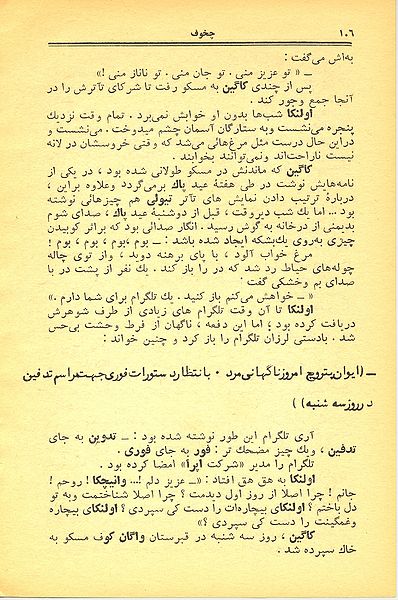 ۱۰۶
چخوف
به‌اش می‌گفت :
ــ « تو عزیز منی . تو جان منی . تو ناناز منی !»
پس از چندی کاگین به مسکو رفت تا شرکای تآترش را در
آنجا جمع وجور کند .
اولنکا شب‌ها بدون او خوابش نمی‌برد . تمام وقت نزدیك
پنجره می‌نشست وبه ستارگان آسمان چشم میدوخت . می‌نشست و
دراین حال درست مثل مرغ‌هائی می‌شد که وقتی خروسشان در لانه
نیست ناراحت‌اند ونمی‌توانند بخوابند .
کاگین که ماندنش در مسکو طولانی شده بود ، در یکی از
نامه‌هایش نوشت در طی هفتهٔ عید پاك برمی‌گردد وعلاوه براین ،
دربارهٔ ترتیب دادن نمایش های تآتر تیولی هم چیزهائی نوشته
بود ... اما یك شب دیروقت ، قبل از دوشنبهٔ عید پاك ، صدای شوم
بدیمنی از درخانه به گوش رسید . انگار صدائی بود که براثر کوبیدن
چیزی به‌روی یك‌بشکه ایجاد شده باشد : ــ بوم ،بوم ، بوم ، بوم !
مرغ خواب آلود ، با پای برهنه دوید ، واز توی چاله
چوله‌های حیاط رد شد که در را باز کند . یك نفر از پشت در با
صدای بم وخشکی گفت :
« ــ خواهش می‌کنم باز کنید . یك تلگرام برای شما دارم .»
اولنکا تا آن وقت تلگرام های زیادی از طرف شوهرش
دریافت کرده بود ؛ اما این دفعه ، ناگهان از فرط وحشت بی‌حس
شد . بادستی لرزان تلگرام را باز کرد و چنین خواند :
ــ (ایوان پتروچ امروز ناگهانی مرد . با نتظار دستورات فوری جهت مراسم تدفین
در روز سه شنبه) )
آری تلگرام این طور نوشته شده بود : ــ تدوین به جای
تدفین ، ویك چیز مضحك تر : فور به جای فوری .
تلگرام را مدیر «شرکت اپرا» امضا کرده بود .
اولنکا به هق هق افتاد : «ــ عزیز دلم !... وانیچکا ! روحم !
جانم ! چرا اصلا از روز اول دیدمت ؟ چرا اصلا شناختمت وبه تو
دل باختم ؟ اولنکای بیچاره‌ات را دست کی سپردی ؟ اولنکای بیچاره
وغمگینت را دست کی سپردی ؟»
کاگین ، روز سه شنبه در قبرستان واگان کوف مسکو به
خاك سپرده شد .